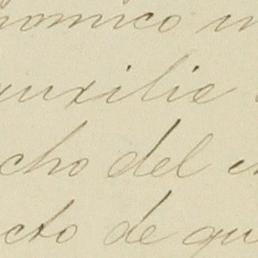 nomico
auxilie
cho del
cto de qu